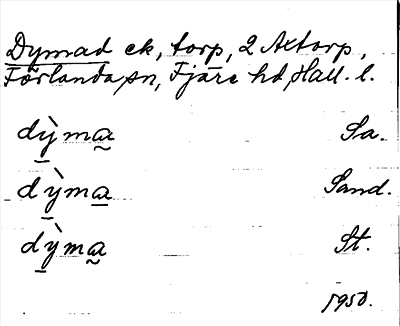 Dymad ek, torp, 2 Axtorp,
Förlanda sn, Fjäre hd, Hall. l.
dỳ̠ma̰ Sa.
dỳ̠ma̠ Sand.
dỳ̠ma̰ St.
1950.